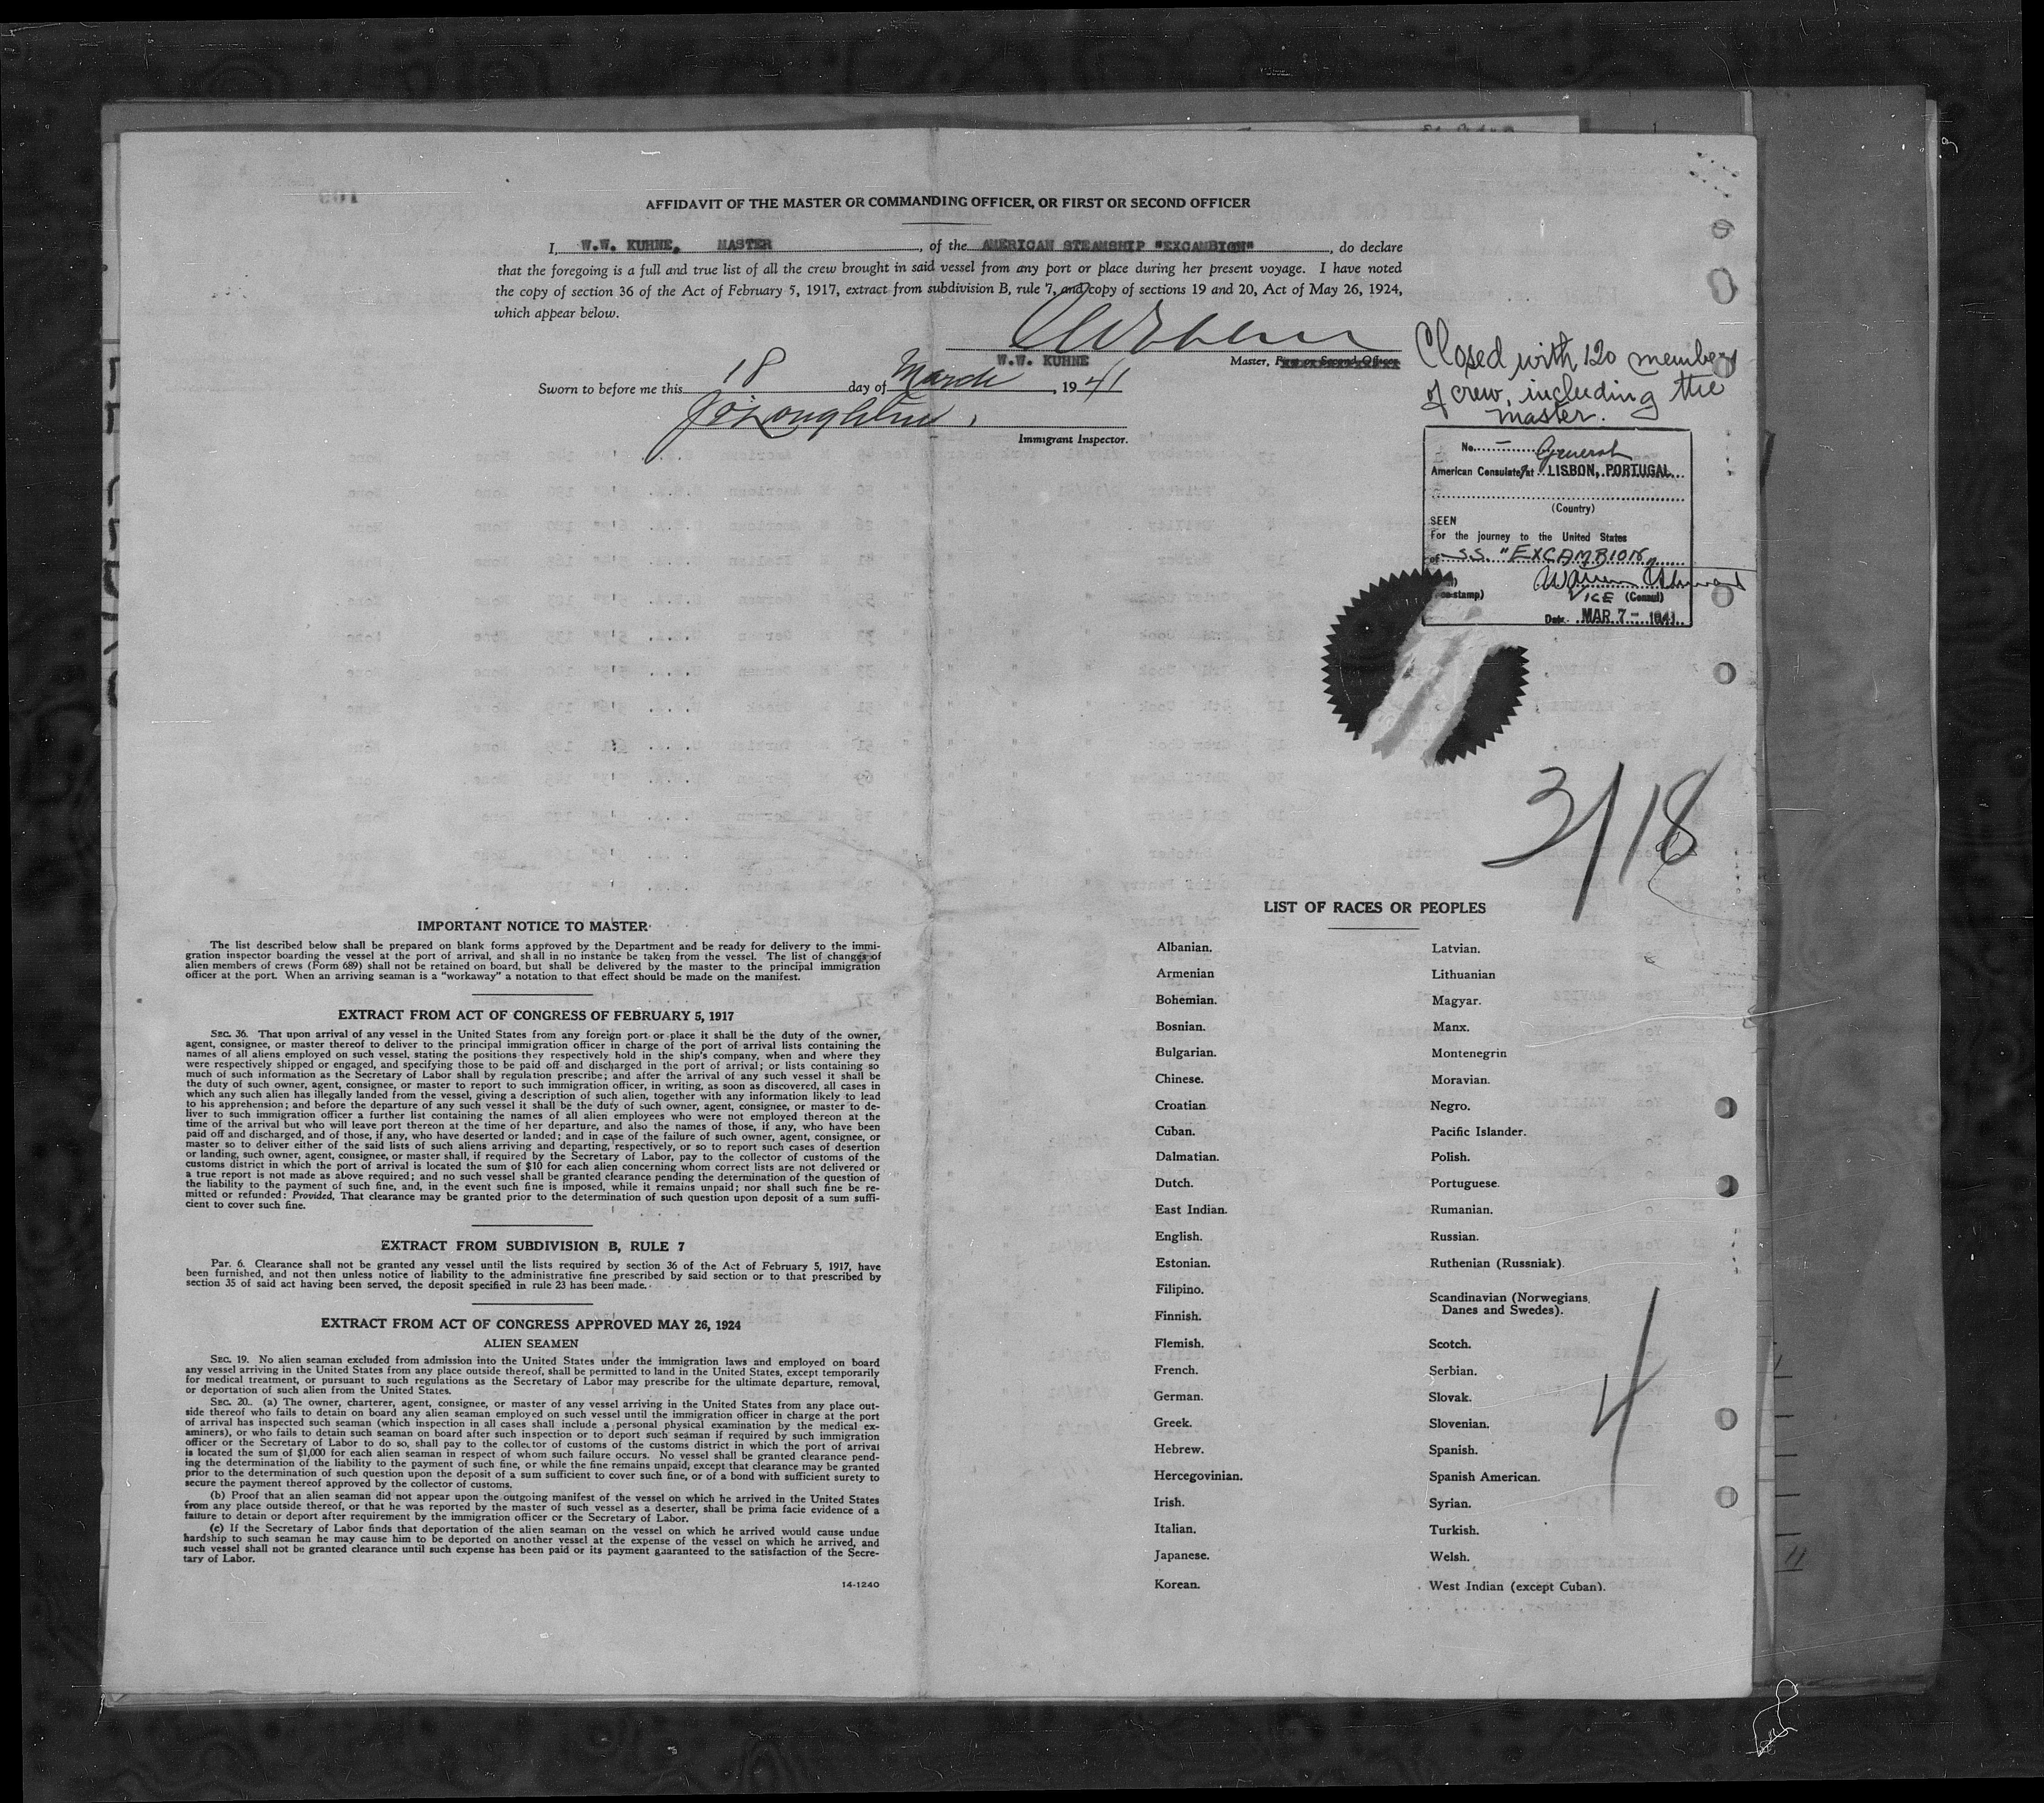 AFFIDAVIT OF THE MASTER OR COMMANDING OFFICER, OR FIRST OR SECOND OFFICER
I, W.W. KUHNE, MASTER, of the AMERICAN STEAMSHIP "EXCAMBION", do declare
that the foregoing is a full and true list of all the crew brought in said vessel from any port or place during her present voyage. I have noted
the copy of section 36 of the Act of February 5, 1917, extract from subdivision B, rule 7, and copy of sections 19 and 20, Act of May 26, 1924,
which appear below.
W.W. KUHNE Master, First or Second Officer
Sworn to before me this 18 day of March, 1941
Immigrant Inspector.
Closed with 120 members
of crew, including the
master.
No. — General
American Consulate at LISBON, PORTUGAL
(Country)
SEEN
For the journey to the United States
of S.S. "EXCAMBION"
VICE (Consul)
Date MAR 7 - 1941
3/18
IMPORTANT NOTICE TO MASTER
The list described below shall be prepared on blank forms approved by the Department and be ready for delivery to the immi-
gration inspector boarding the vessel at the port of arrival, and shall in no instance be taken from the vessel. The list of changes of
alien members of crews (Form 689) shall not be retained on board, but shall be delivered by the master to the principal immigration
officer at the port. When an arriving seaman is a "workaway" a notation to that effect should be made on the manifest.
EXTRACT FROM ACT OF CONGRESS OF FEBRUARY 5, 1917
SEC. 36. That upon arrival of any vessel in the United States from any foreign port or place it shall be the duty of the owner,
agent, consignee, or master thereof to deliver to the principal immigration officer in charge of the port of arrival lists containing the
names of all aliens employed on such vessel, stating the positions they respectively hold in the ship's company, when and where they
were respectively shipped or engaged, and specifying those to be paid off and discharged in the port of arrival; or lists containing so
much of such information as the Secretary of Labor shall by regulation prescribe; and after the arrival of any such vessel it shall be
the duty of such owner, agent, consignee, or master to report to such immigration officer, in writing, as soon as discovered, all cases in
which any such alien has illegally landed from the vessel, giving a description of such alien, together with any information likely to lead
to his apprehension; and before the departure of any such vessel it shall be the duty of such owner, agent, consignee, or master to de-
liver to such immigration officer a further list containing the names of all alien employees who were not employed thereon at the
time of the arrival but who will leave port thereon at the time of her departure, and also the names of those, if any, who have been
paid off and discharged, and of those, if any, who have deserted or landed; and in case of the failure of such owner, agent, consignee, or
master so to deliver either of the said lists of such aliens arriving and departing, respectively, or so to report such cases of desertion
or landing, such owner, agent, consignee, or master shall, if required by the Secretary of Labor, pay to the collector of customs of the
customs district in which the port of arrival is located the sum of $10 for each alien concerning whom correct lists are not delivered or
a true report is not made as above required; and no such vessel shall be granted clearance pending the determination of the question of
the liability to the payment of such fine, and, in the event such fine is imposed, while it remains unpaid; nor shall such fine be re-
mitted or refunded: Provided, That clearance may be granted prior to the determination of such question upon deposit of a sum suffi-
cient to cover such fine.
EXTRACT FROM SUBDIVISION B, RULE 7
Par. 6. Clearance shall not be granted any vessel until the lists required by section 36 of the Act of February 5, 1917, have
been furnished, and not then unless notice of liability to the administrative fine prescribed by said section or to that prescribed by
section 35 of said act having been served, the deposit specified in rule 23 has been made.
EXTRACT FROM ACT OF CONGRESS APPROVED MAY 26, 1924
ALIEN SEAMEN
SEC. 19. No alien seaman excluded from admission into the United States under the immigration laws and employed on board
any vessel arriving in the United States from any place outside thereof, shall be permitted to land in the United States, except temporarily
for medical treatment, or pursuant to such regulations as the Secretary of Labor may prescribe for the ultimate departure, removal,
or deportation of such alien from the United States.
SEC. 20. (a) The owner, charterer, agent, consignee, or master of any vessel arriving in the United States from any place out-
side thereof who fails to detain on board any alien seaman employed on such vessel until the immigration officer in charge at the port
of arrival has inspected such seaman (which inspection in all cases shall include a personal physical examination by the medical ex-
aminers), or who fails to detain such seaman on board after such inspection or to deport such seaman if required by such immigration
officer or the Secretary of Labor to do so, shall pay to the collector of customs of the customs district in which the port of arrival
is located the sum of $1,000 for each alien seaman in respect of whom such failure occurs. No vessel shall be granted clearance pend-
ing the determination of the liability to the payment of such fine, or while the fine remains unpaid, except that clearance may be granted
prior to the determination of such question upon the deposit of a sum sufficient to cover such fine, or of a bond with sufficient surety to
secure the payment thereof approved by the collector of customs.
(b) Proof that an alien seaman did not appear upon the outgoing manifest of the vessel on which he arrived in the United States
from any place outside thereof, or that he was reported by the master of such vessel as a deserter, shall be prima facie evidence of a
failure to detain or deport after requirement by the immigration officer or the Secretary of Labor.
(c) If the Secretary of Labor finds that deportation of the alien seaman on the vessel on which he arrived would cause undue
hardship to such seaman he may cause him to be deported on another vessel at the expense of the vessel on which he arrived, and
such vessel shall not be granted clearance until such expense has been paid or its payment guaranteed to the satisfaction of the Secre-
tary of Labor.
14-1240
LIST OF RACES OR PEOPLES
Albanian.
Armenian
Bohemian.
Bosnian.
Bulgarian.
Chinese.
Croatian
Cuban.
Dalmatian.
Dutch.
East Indian.
English.
Estonian.
Filipino.
Finnish.
Flemish.
French.
German.
Greek.
Hebrew.
Hercegovinian.
Irish.
Italian.
Japanese.
Korean.
Latvian.
Lithuanian
Magyar.
Manx.
Montenegrin
Moravian.
Negro.
Pacific Islander.
Polish.
Portuguese.
Rumanian.
Russian.
Ruthenian (Russniak).
Scandinavian (Norwegians,
Danes and Swedes).
Scotch.
Serbian.
Slovak.
Slovenian.
Spanish.
Spanish American.
Syrian.
Turkish.
Welsh.
West Indian (except Cuban).
4